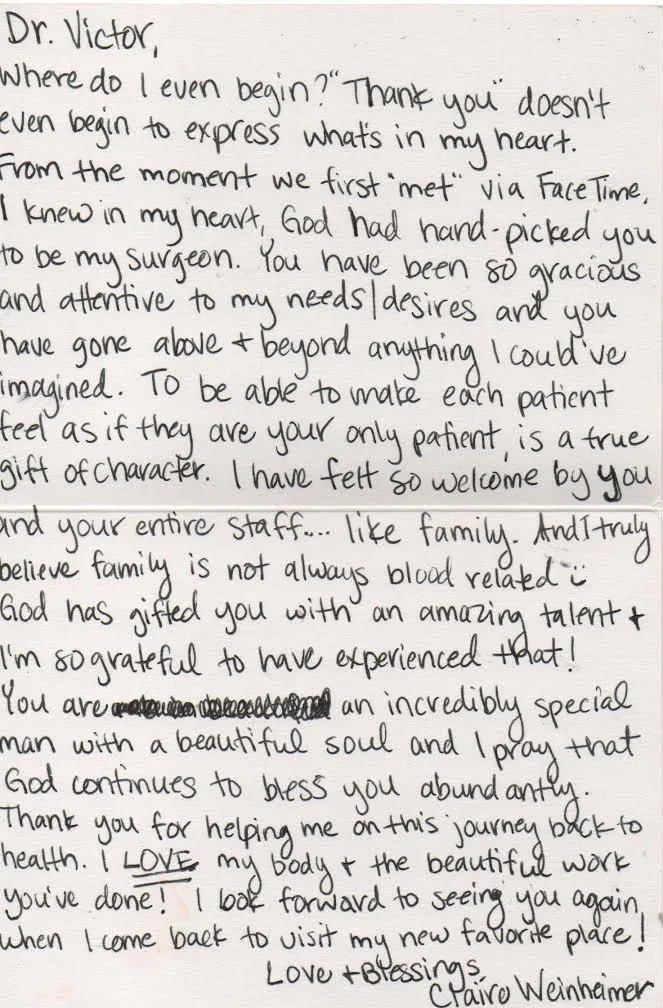 Dr. Victor,
Where do I even begin? "Thank you" doesn't
even begin to express what's in my heart.
From the moment we first "met" via FaceTime,
I knew in my heart, God had hand-picked you
to be my surgeon. You have been so gracious
and attentive to my needs/desires and you
have gone above + beyond anything I could've
imagined. To be able to make each patient
feel as if they are your only patient, is a true
gift of character. I have felt so welcome by you
and your entire staff.... like family. And I truly
believe family is not always blood related ü
God has gifted you with an amazing talent +
I'm so grateful to have experienced that!
You are an incredibly special
man with a beautiful soul and I pray that
God continues to bless you abundantly.
Thank you for helping me on this journey back to
health. I LOVE my body + the beautiful work
you've done! I look forward to seeing you again,
when I come back to visit my new favorite place!
Love + Blessings,
Claire Weinheimer